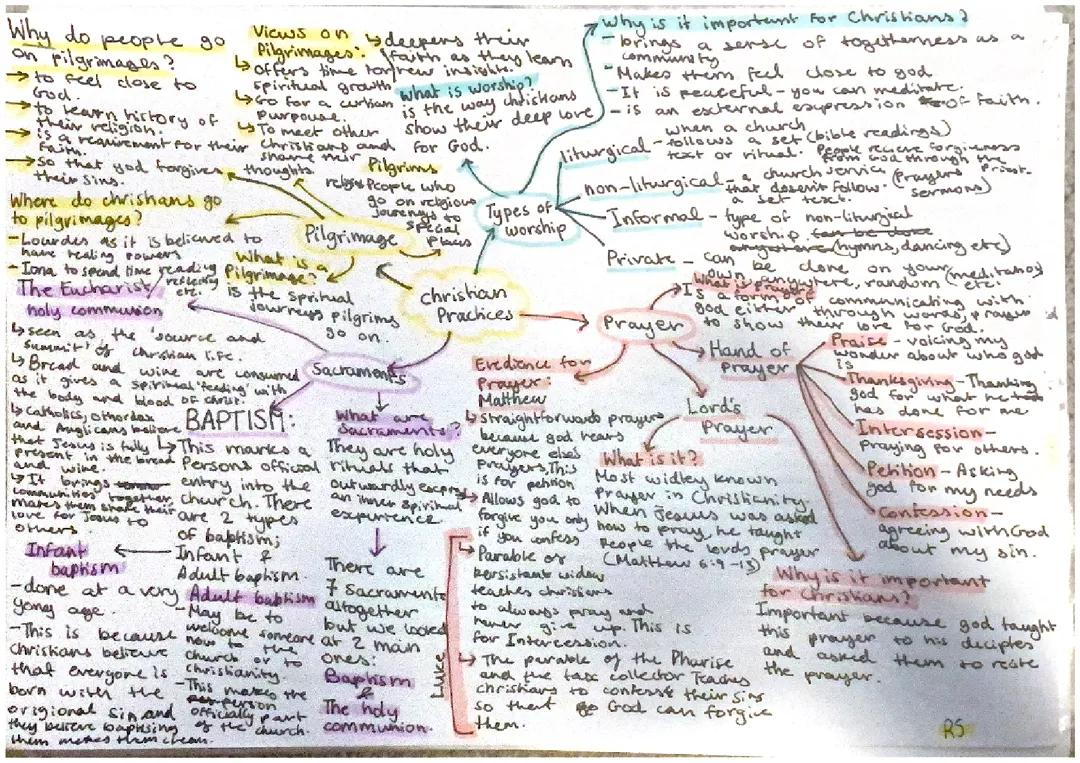 Why do people go
on pilgrimages?
→ to feel close to
God.
→ to learn history of
their religion.
→ is a requirement for their
faith.
→ so that god forgives
their sins.
Views on
Pilgrimages:
↳ offers time for
spiritual growth
↳ Go for a
purpouse.
↳ To meet other
christians and
share their
thoughts.
↳ deepens their
faith as they learn
new insights
What is worship?
is the way christians
show their deep love
for God.
Pilgrims
People who
go on religious
journeys to
special
places
Why is it important for Christians?
- brings a sense of togetherness as a
community
- Makes them feel close to god
- It is peaceful - you can meditate.
- is an external expression of faith.
Types of
worship
liturgical - when a church
follows a set (bible readings)
text or ritual. People recieve forgiveness
from God through the Priest.
non-liturgical - a church service (prayers
that doesn't follow. sermons)
a set text.
Informal - type of non-liturgical
worship. can be done
anywhere (hymns, dancing etc)
Private - can be done on your
own anywhere, random (meditation)
etc.
Pilgrimage
Where do chrishans go
to pilgrimages?
- Lourdes as it is believed to
have healing powers
- Iona to spend time reading
reflecting
etc.
What is a
Pilgrimage?
is the spiritual
journeys pilgrims
go on.
christian
Practices
The Eucharist/
holy communion
↳ seen as the 'source and
summit' of christian life.
↳ Bread and wine are consumed
as it gives a spiritual 'feeding' with
the body and blood of christ.
↳ Catholics, othordox
and Anglicans believe
that Jesus is fully
present in the bread
and wine.
↳ It brings
communities together,
makes them share their
love for Jesus to
others
Sacraments
BAPTISM:
↳ This marks a
persons official
entry into the
church. There
are 2 types
of baptism;
Infant &
Adult baptism.
Infant
baptism
- done at a very
yong age.
- This is because
christians believe
that everyone is
born with the
origional sin and
they believe baptising
them makes them clean.
Adult baptism
- May be to
welcome someone
new to the
church or to
christianity.
- This makes the
person
officially part
of the church.
What are
Sacraments?
They are holy
rituals that
outwardly express
an inner spiritual
experience.
There are
7 Sacraments
altogether
but we looked
at 2 main
ones:
Baptism
&
The holy
communion.
Prayer
What is prayer
Is a form of communicating with
god either through words, prayers
to show their love for God.
Evedience for
Prayer:
Matthew
↳ Straightforward prayers
because god hears
everyone elses
prayers, This
is for petition
↳ Allows god to
forgive you only
if you confess
Luke
↳ Parable of
persistant widow
teaches christians
to always pray and
never give up. This is
for Intercession.
↳ The parable of the Pharise
and the tax collector Teaches
christians to confess their sins
so that God can forgive
them.
Lord's
Prayer
What is it?
Most widley known
Prayer in Christianity.
When Jesus was asked
how to pray, he taught
People the lords prayer
(Matthew 6:9-13)
Why is it important
for Christians?
Important because god taught
this prayer to his deciples
and asked them to recite
the prayer.
Hand of
prayer
Praise - voicing my
wonder about who god
is
Thanksgiving - Thanking
god for what he
has done for me
Intersession -
Praying for others.
Petition - Asking
god for my needs
Confession -
agreeing with God
about my sin.
RS